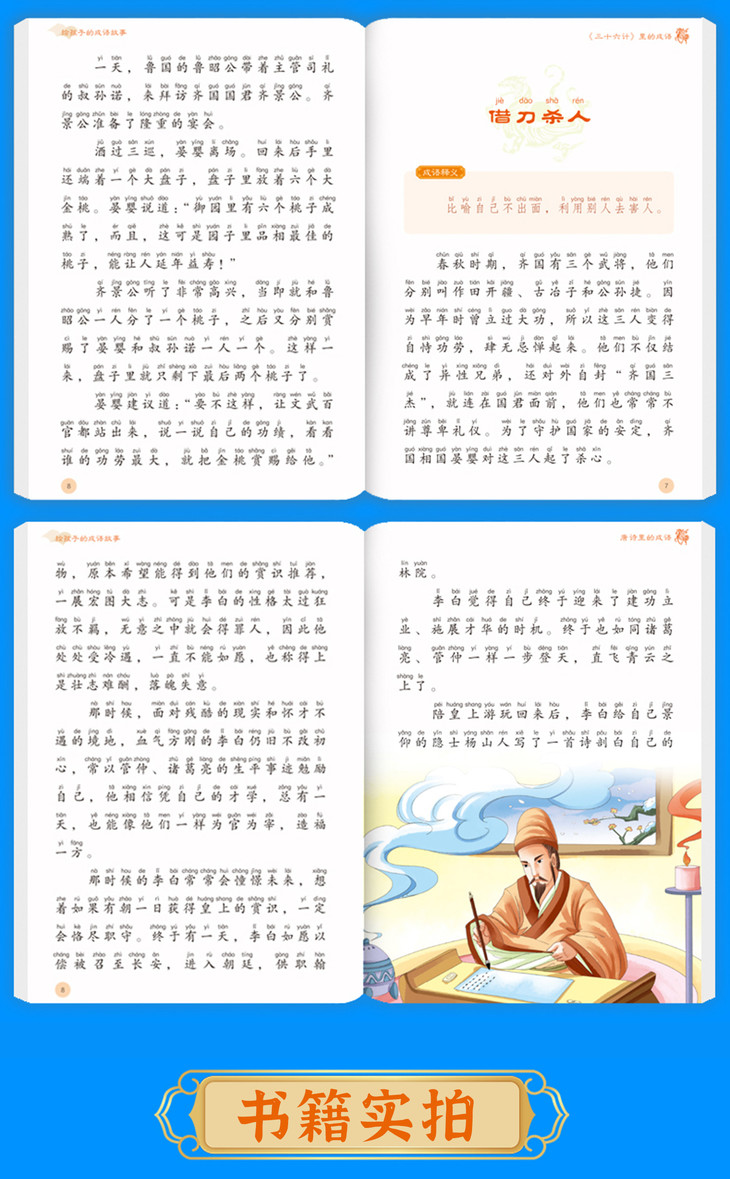 给孩子的成语故事
一天，鲁国的鲁昭公带着主管司礼
的叔孙诺，来拜访齐国国君齐景公。齐
景公准备了隆重的宴会。
酒过三巡，晏婴离场。回来后手里
还端着一个大盘子，盘子里放着六个大
金桃。晏婴说道：“御园里有六个桃子成
熟了，而且，这可是园子里品相最佳的
桃子，能让人延年益寿！”
齐景公听了非常高兴，当即就和鲁
昭公一人分了一个桃子，之后又分别赏
赐了晏婴和叔孙诺一人一个。这样一
来，盘子里就只剩下最后两个桃子了。
晏婴建议道：“要不这样，让文武百
官都站出来，说一说自己的功绩，看看
谁的功劳最大，就把金桃赏赐给他。”
8
《三十六计》里的成语
jiè dāo shā rén
借刀杀人
成语释义
比喻自己不出面，利用别人去害人。
春秋时期，齐国有三个武将，他们
分别叫作田开疆、古冶子和公孙捷。因
为早年时曾立过大功，所以这三人变得
自恃功劳，肆无忌惮起来。他们不仅结
成了异性兄弟，还对外自封“齐国三
杰”，就连在国君面前，他们也常常不
讲尊卑礼仪。为了守护国家的安定，齐
国相国晏婴对这三人起了杀心。
7
给孩子的成语故事
物，原本希望能得到他们的赏识推荐，
一展宏图大志。可是李白的性格太过狂
放不羁，无意之中就会得罪人，因此他
处处受冷遇，一直不能如愿，也称得上
是壮志难酬，落魄失意。
那时候，面对残酷的现实和怀才不
遇的境地，血气方刚的李白仍旧不改初
心，常以管仲、诸葛亮的生平事迹勉励
自己，他相信凭自己的才学，总有一
天，也能像他们一样为官为宰，造福
一方。
那时候的李白常常会憧憬未来，想
着如果有朝一日获得皇上的赏识，一定
会恪尽职守。终于有一天，李白如愿以
偿被召至长安，进入朝廷，供职翰
8
唐诗里的成语
林院。
李白觉得自己终于迎来了建功立
业、施展才华的时机。终于也如同诸葛
亮、管仲一样一步登天，直飞青云之
上了。
陪皇上游玩回来后，李白给自己景
仰的隐士杨山人写了一首诗剖白自己的
书籍实拍